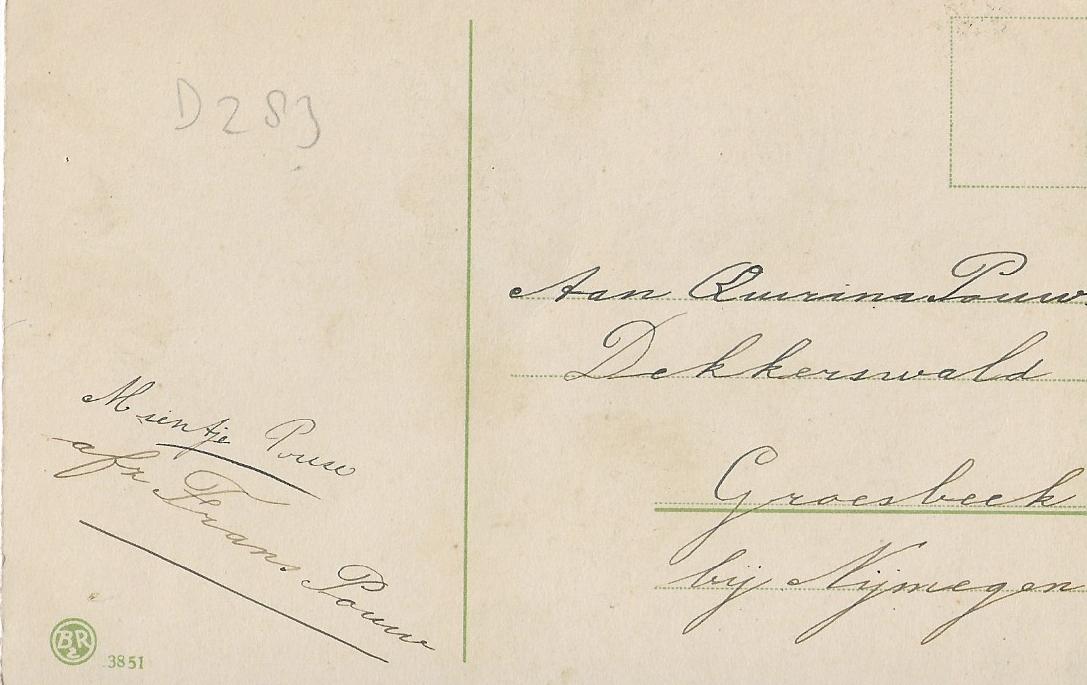 D 283
Mientje Pouw
afz Frans Pouw
BR
3851
Aan Quirina Pouw
Dekkerswald
Groesbeek
bij Nijmegen